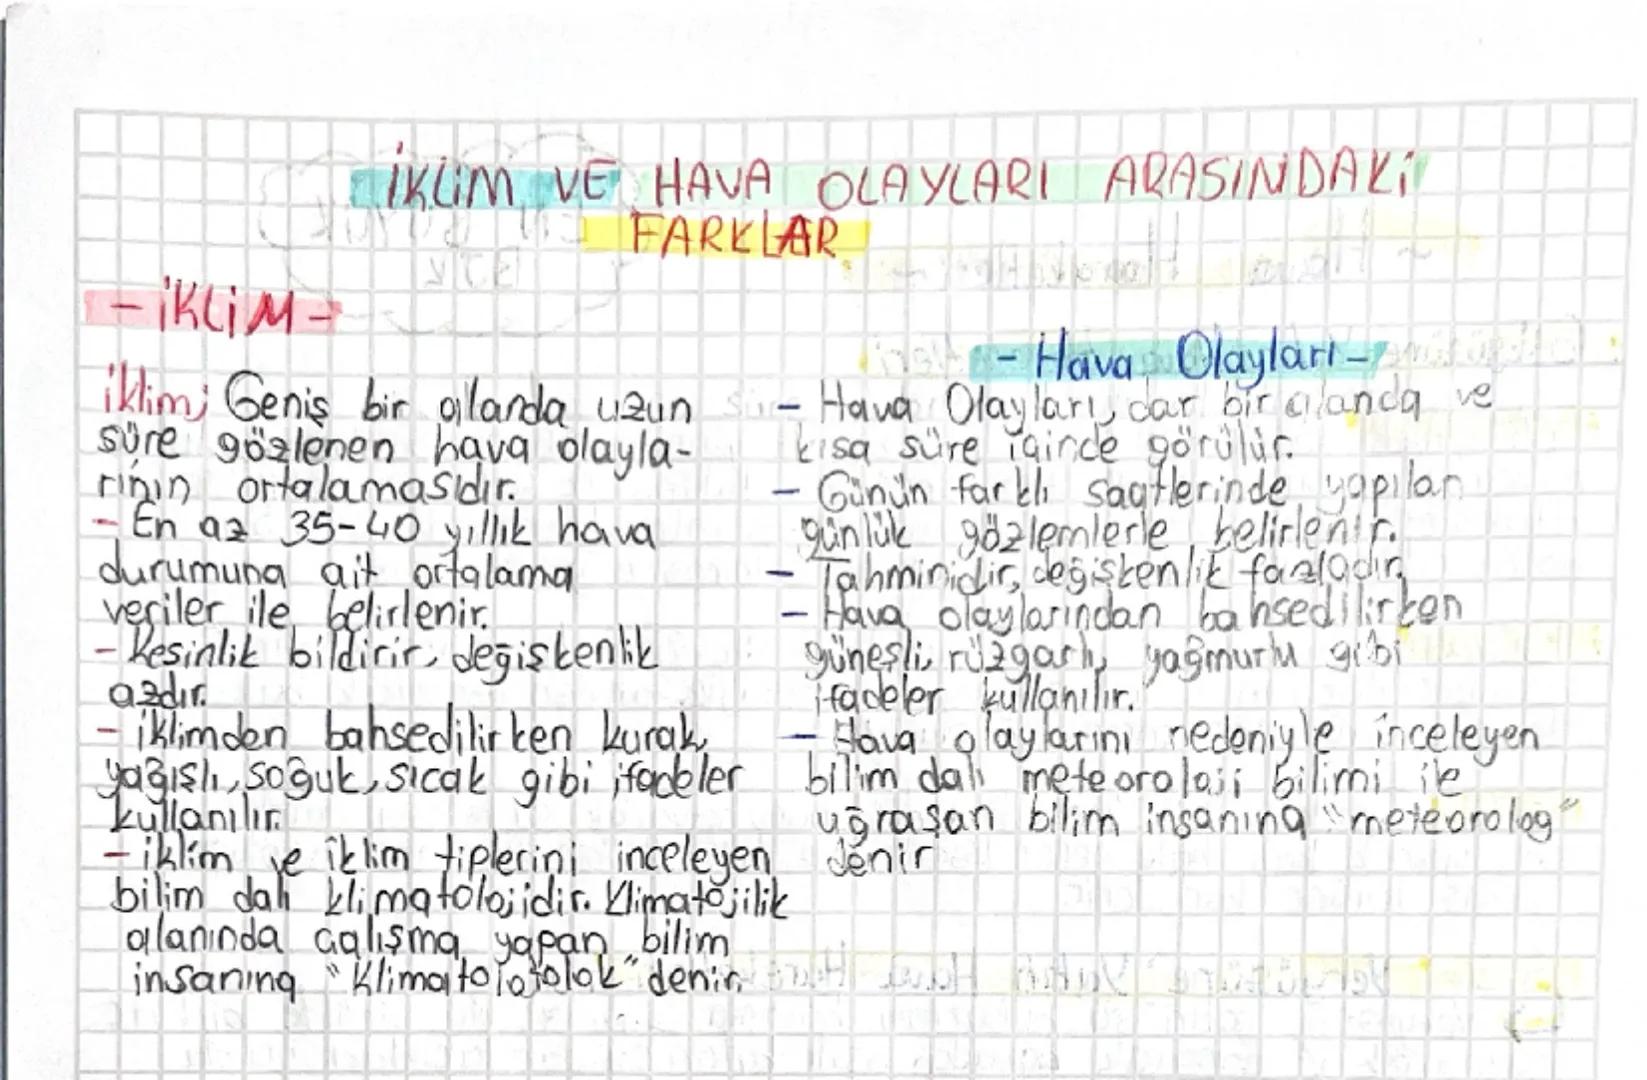 İKLİM VE HAVA OLAYLARI ARASINDAKİ
FARKLAR
- İKLİM -
İklim; Geniş bir alanda uzun
süre gözlenen hava olayla-
rının ortalamasıdır.
- En az 35-40 yıllık hava
durumuna ait ortalama
veriler ile belirlenir.
- Kesinlik bildirir, değişkenlik
azdır.
- iklimden bahsedilirken kurak,
yağışlı, soğuk, sıcak gibi ifadeler
kullanılır.
- iklim ve iklim tiplerini inceleyen
bilim dalı klimatolojidir. Klimatojilik
alanında çalışma yapan bilim
insanına "Klimatolojolok" denir.
- Hava Olayları -
- Hava Olayları, dar bir alanda ve
kısa süre içinde görülür.
- Günün farklı saatlerinde yapılan
günlük gözlemlerle belirlenir.
- Tahminidir, değişkenlik fazladır.
- Hava olaylarından bahsedilirken
güneşli, rüzgarlı, yağmurlu gibi
ifadeler kullanılır.
- Hava olaylarını nedeniyle inceleyen
bilim dalı meteoroloji bilimi ile
uğraşan bilim insanına "meteorolog"
denir